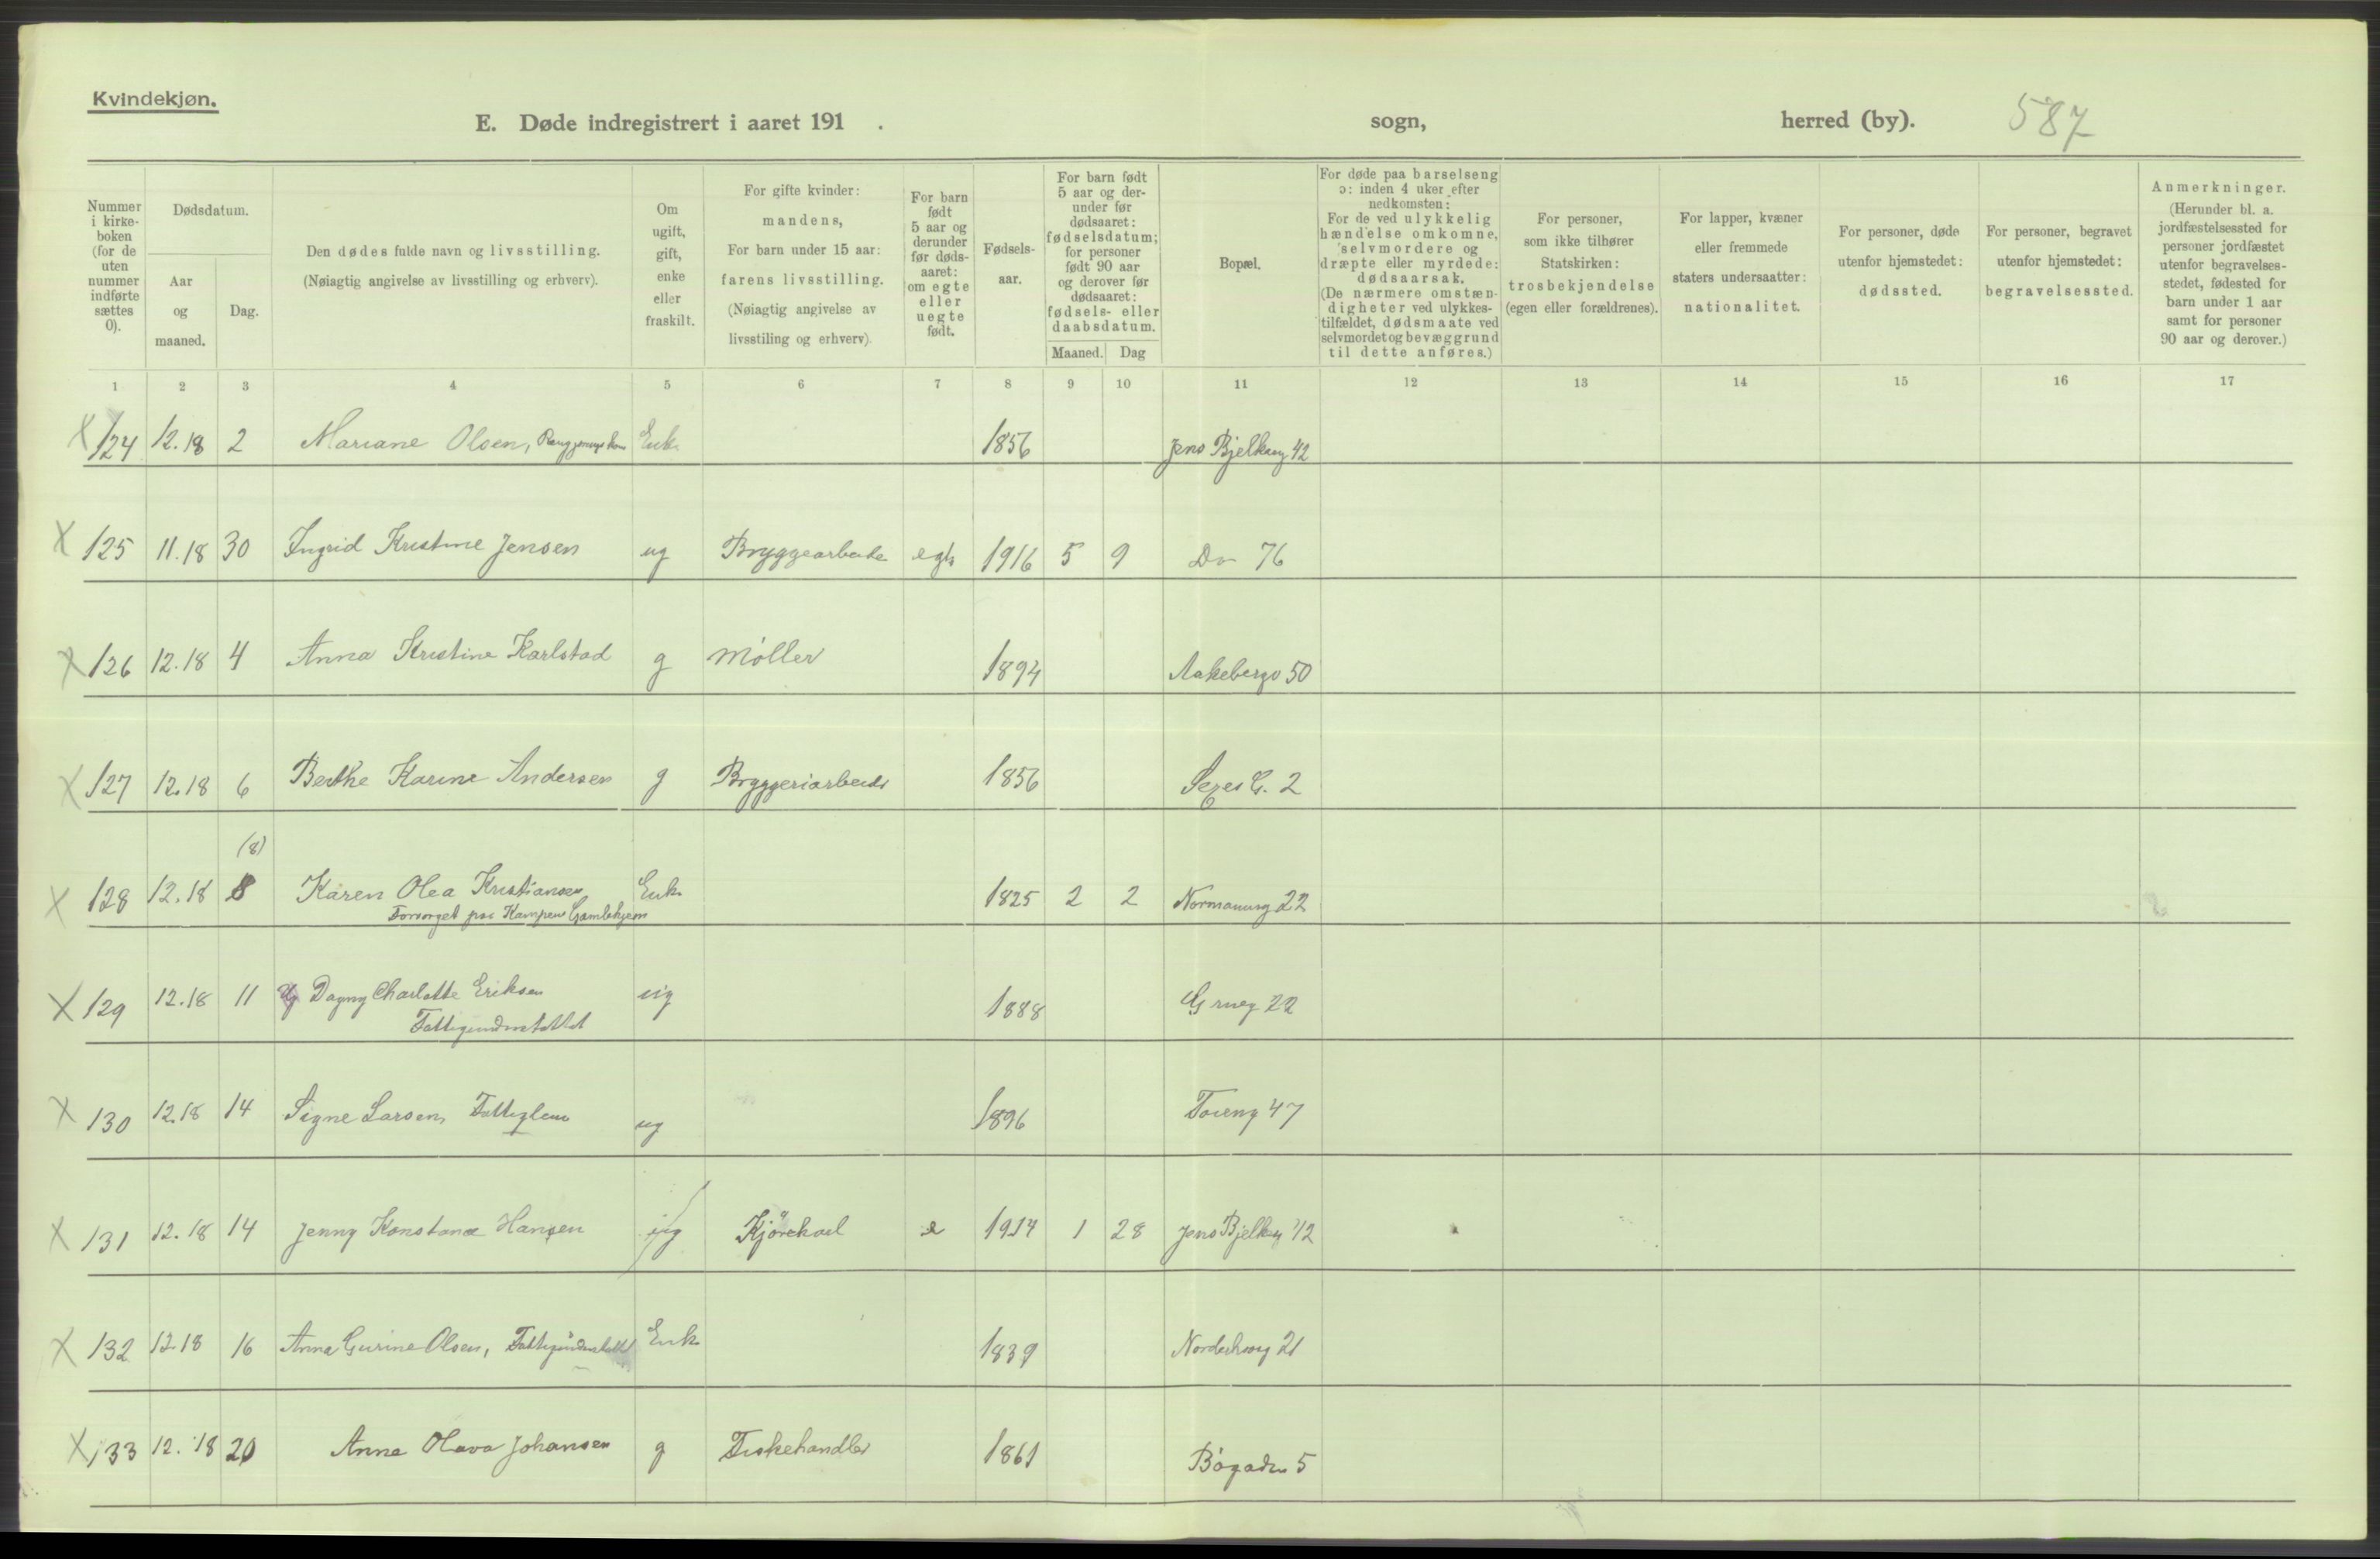 Kvindekjøn.
E. Døde indregistrert i aaret 191 . sogn, herred (by). 587
Nummer i kirkeboken (for de uten nummer indførte sættes 0).
Dødsdatum.
Aar og maaned.
Dag.
Den dødes fulde navn og livsstilling.
(Nøiagtig angivelse av livsstilling og erhverv).
Om ugift, gift, enke eller fraskilt.
For gifte kvinder:
mandens,
For barn under 15 aar:
farens livsstilling.
(Nøiagtig angivelse av
livsstiling og erhverv).
For barn født 5 aar og derunder før dødsaaret: om egte eller uegte født.
Fødselsaar.
For barn født 5 aar og derunder før dødsaaret: fødselsdatum; for personer født 90 aar og derover før dødsaaret: fødsels- eller daabsdatum.
Maaned. Dag
Bopæl.
For døde paa barselseng
ɔ: inden 4 uker efter
nedkomsten:
For de ved ulykkelig
hændelse omkomne,
selvmordere og
dræpte eller myrdede:
dødsaarsak.
(De nærmere omstæn-
digheter ved ulykkes-
tilfældet, dødsmaate ved
selvmordet og bevæggrund
til dette anføres.)
For personer,
som ikke tilhører
Statskirken:
trosbekjendelse
(egen eller forældrenes).
For lapper, kvæner
eller fremmede
staters undersaatter:
nationalitet.
For personer, døde
utenfor hjemstedet:
dødssted.
For personer, begravet
utenfor hjemstedet:
begravelsessted.
Anmerkninger.
(Herunder bl. a.
jordfæstelsessted for
personer jordfæstet
utenfor begravelses-
stedet, fødested for
barn under 1 aar
samt for personer
90 aar og derover.)
1 2 3 4 5 6 7 8 9 10 11 12 13 14 15 16 17
X 124 12.18 2 Mariane Olsen, Enk. 1856 Jens Bjelkesg 42
X 125 11.18 30 Ingrid Kristine Jensen ug Bryggearbeide egte 1916 5 9 Do 76
X 126 12.18 4 Anna Kristine Karlstad g Møller 1894 Aakebergv 50
X 127 12.18 6 Berthe Karine Andersen g Bryggeriarbeide 1856 G. 2
(8)
X 128 12.18 8 Karen Olea Kristiansen Enk 1825 2 2 Normannsg 22
Forsorget paa Kampens Gamlehjem
X 129 12.18 11 Dagny Charlotte Eriksen ug 1888 Grueg 22
Fattigunderstøttet
X 130 12.18 14 Signe Larsen, Fattiglem ug 1896 Tøieng 47
X 131 12.18 14 Jenny Konstance Hansen ug Kjørekarl e 1914 1 28 Jens Bjelkesg 12
X 132 12.18 16 Anna Gurine Olsen, Fattigunderstøttet Enk 1839 Norderhovg 21
X 133 12.18 20 Anne Olava Johansen g Fiskehandler 1861 Bøgaden 5